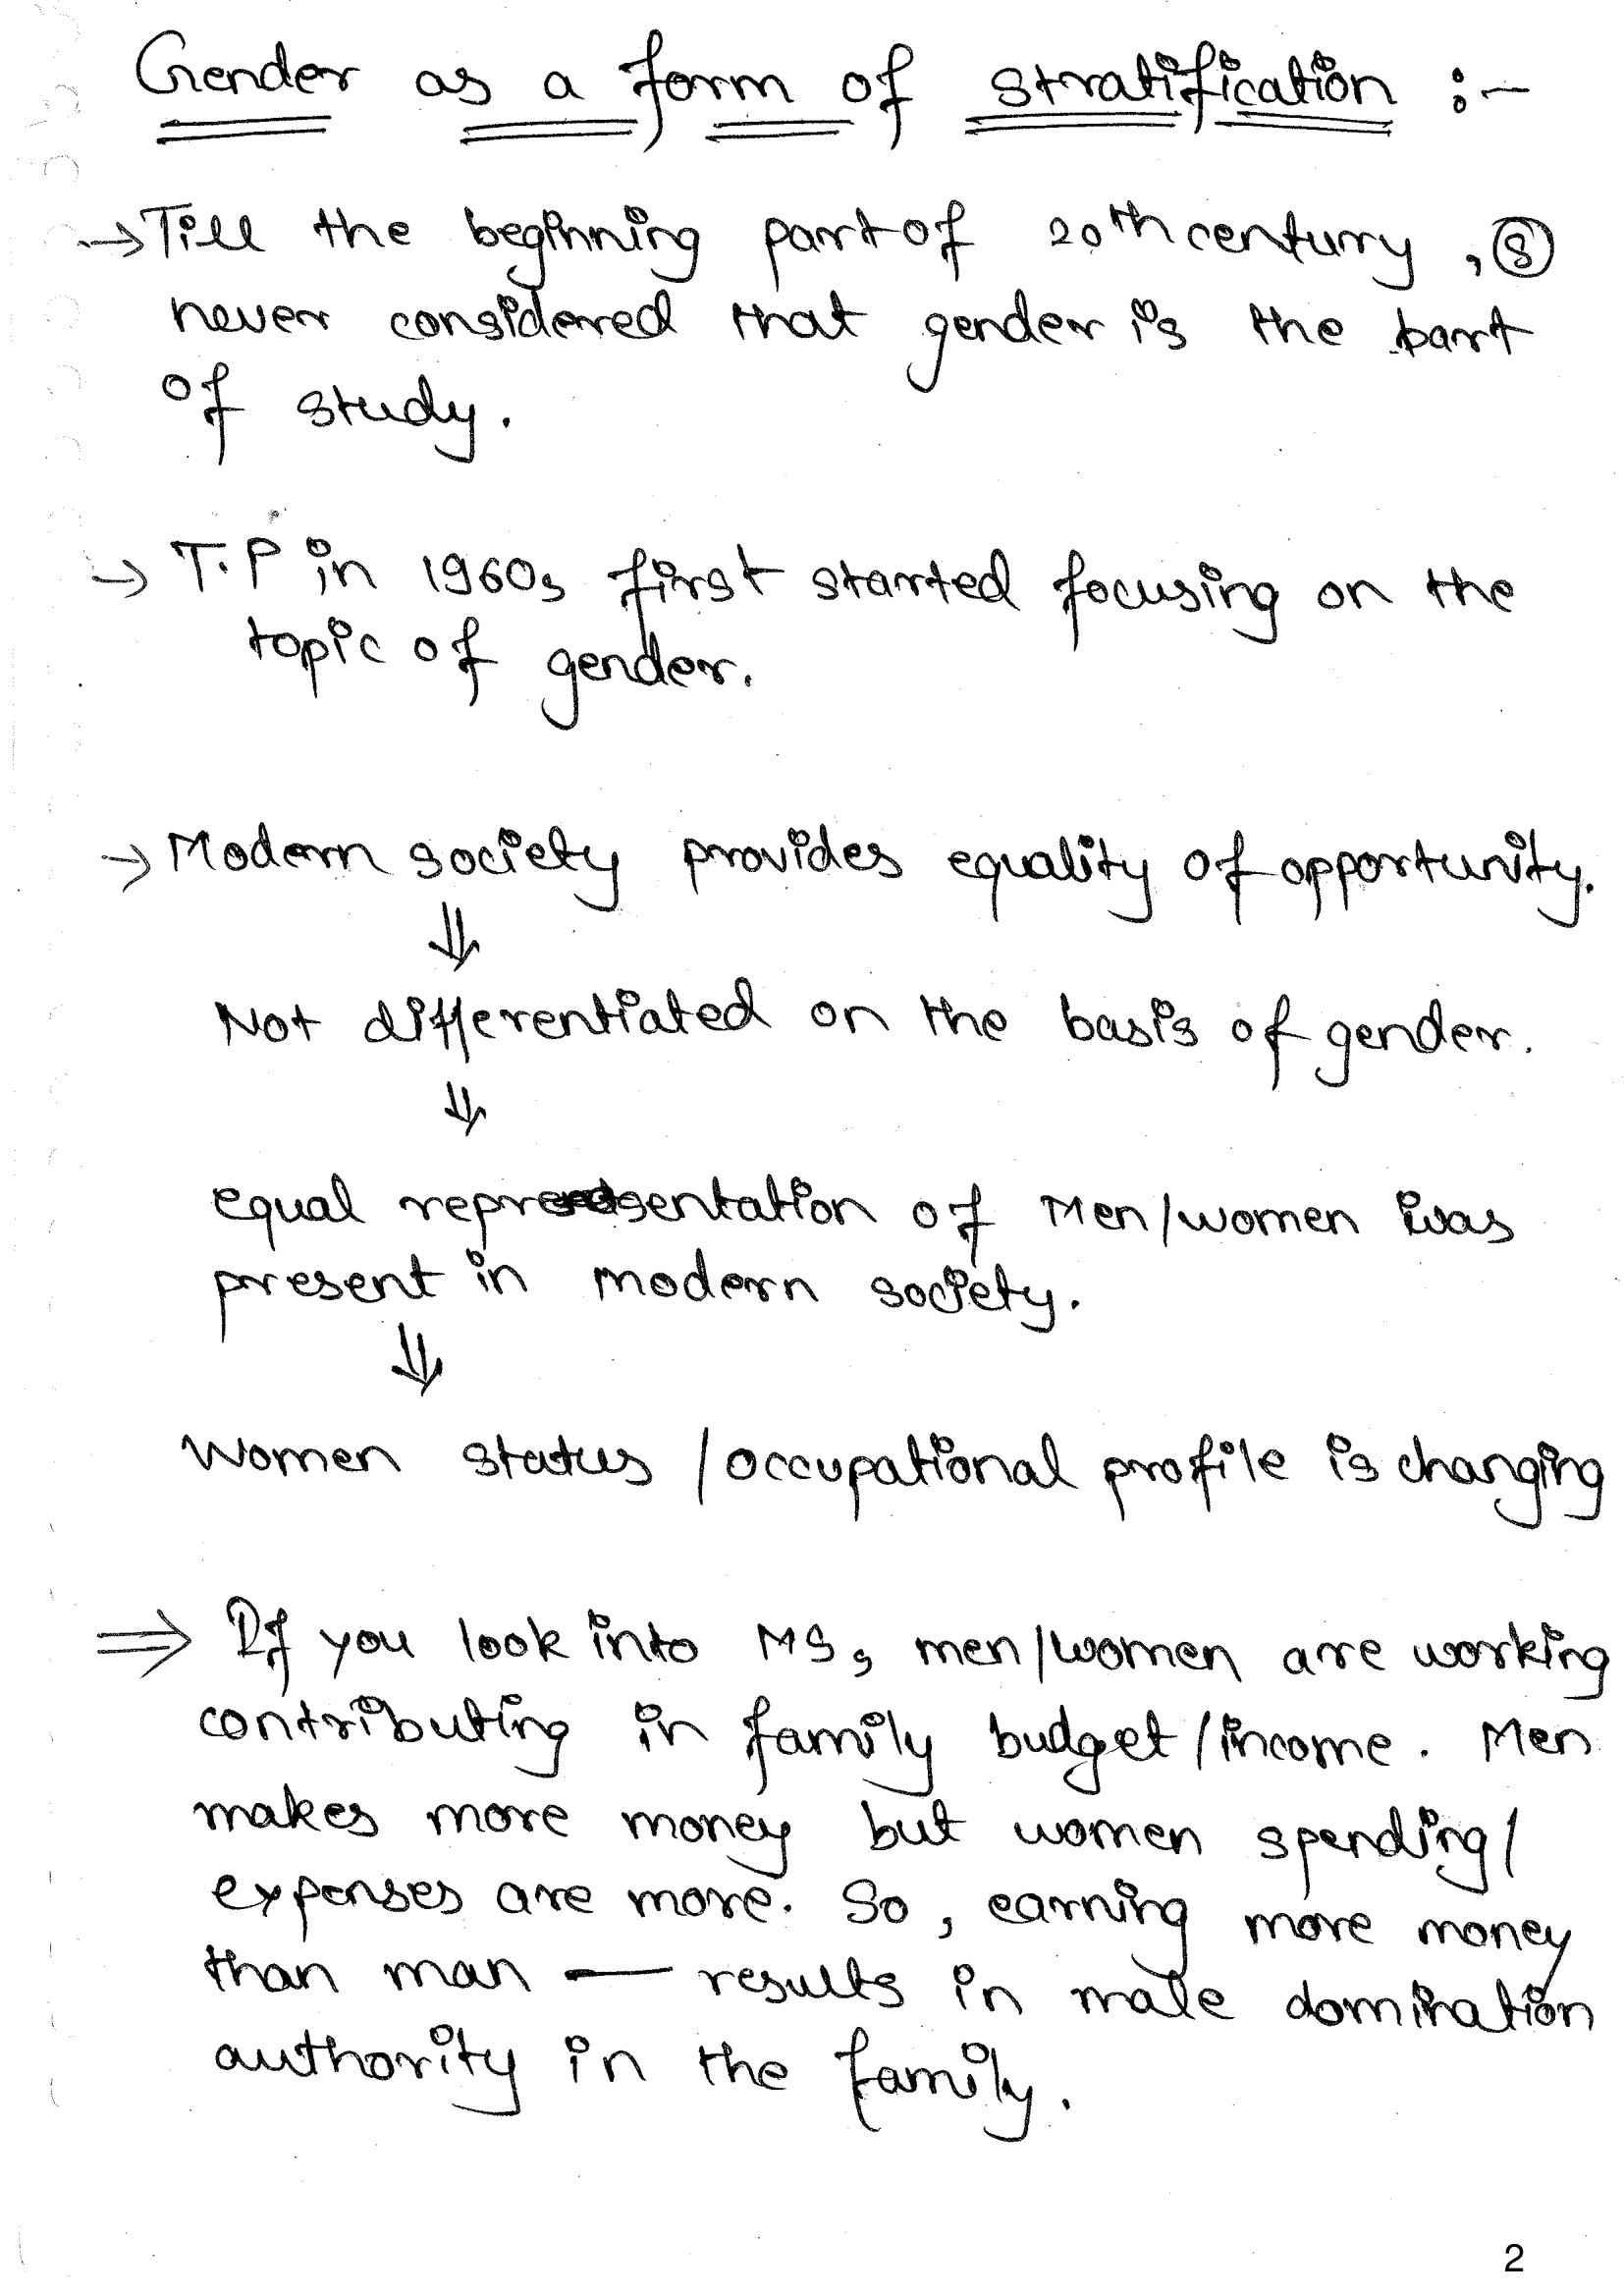 Gender as a form of stratification :-
→ Till the beginning part of 20th century, Ⓢ
never considered that gender is the part
of study.
→ T.P in 1960s first started focusing on the
topic of gender.
→ Modern society provides equality of opportunity.
⇓
Not differentiated on the basis of gender.
⇓
equal representation of Men/women was
present in modern society.
⇓
Women status / occupational profile is changing
⇒ If you look into MS, men/women are working
contributing in family budget/income. Men
makes more money but women spending/
expenses are more. So, earning more money
than man — results in male domination
authority in the family.
2